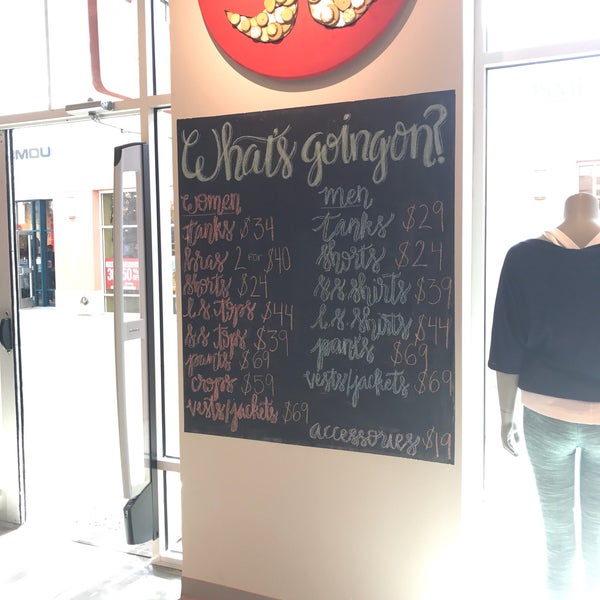 What's going on?
women
tanks $34
bras 2 for $40
shorts $24
l.s tops $44
s.s tops $39
pants $69
crops $59
vests/jackets $69
men
tanks $29
shorts $24
s.s shirts $39
l.s shirts $44
pants $69
vests/jackets $69
accessories $19